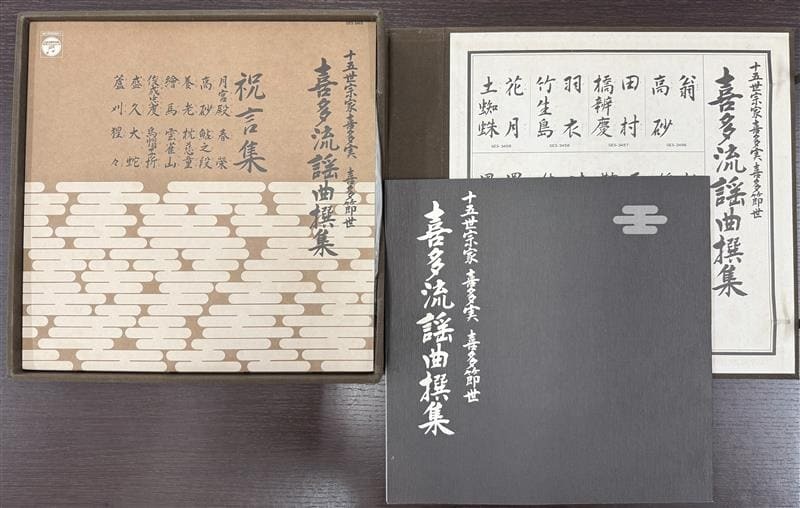 十五世宗家 喜多実 喜多節世
喜多流謡曲撰集
祝言集
月宮殿 春栄
高砂 鮎之段
養老 枕慈童
繪馬 雲雀山
俊成忠度 烏帽子折
盛久 大蛇
蘆刈 猩々
十五世宗家 喜多実 喜多節世
喜多流謡曲撰集
翁
高砂
田村
橋辨慶
羽衣
竹生島
花月
土蜘蛛
十五世宗家 喜多実 喜多節世
喜多流謡曲撰集